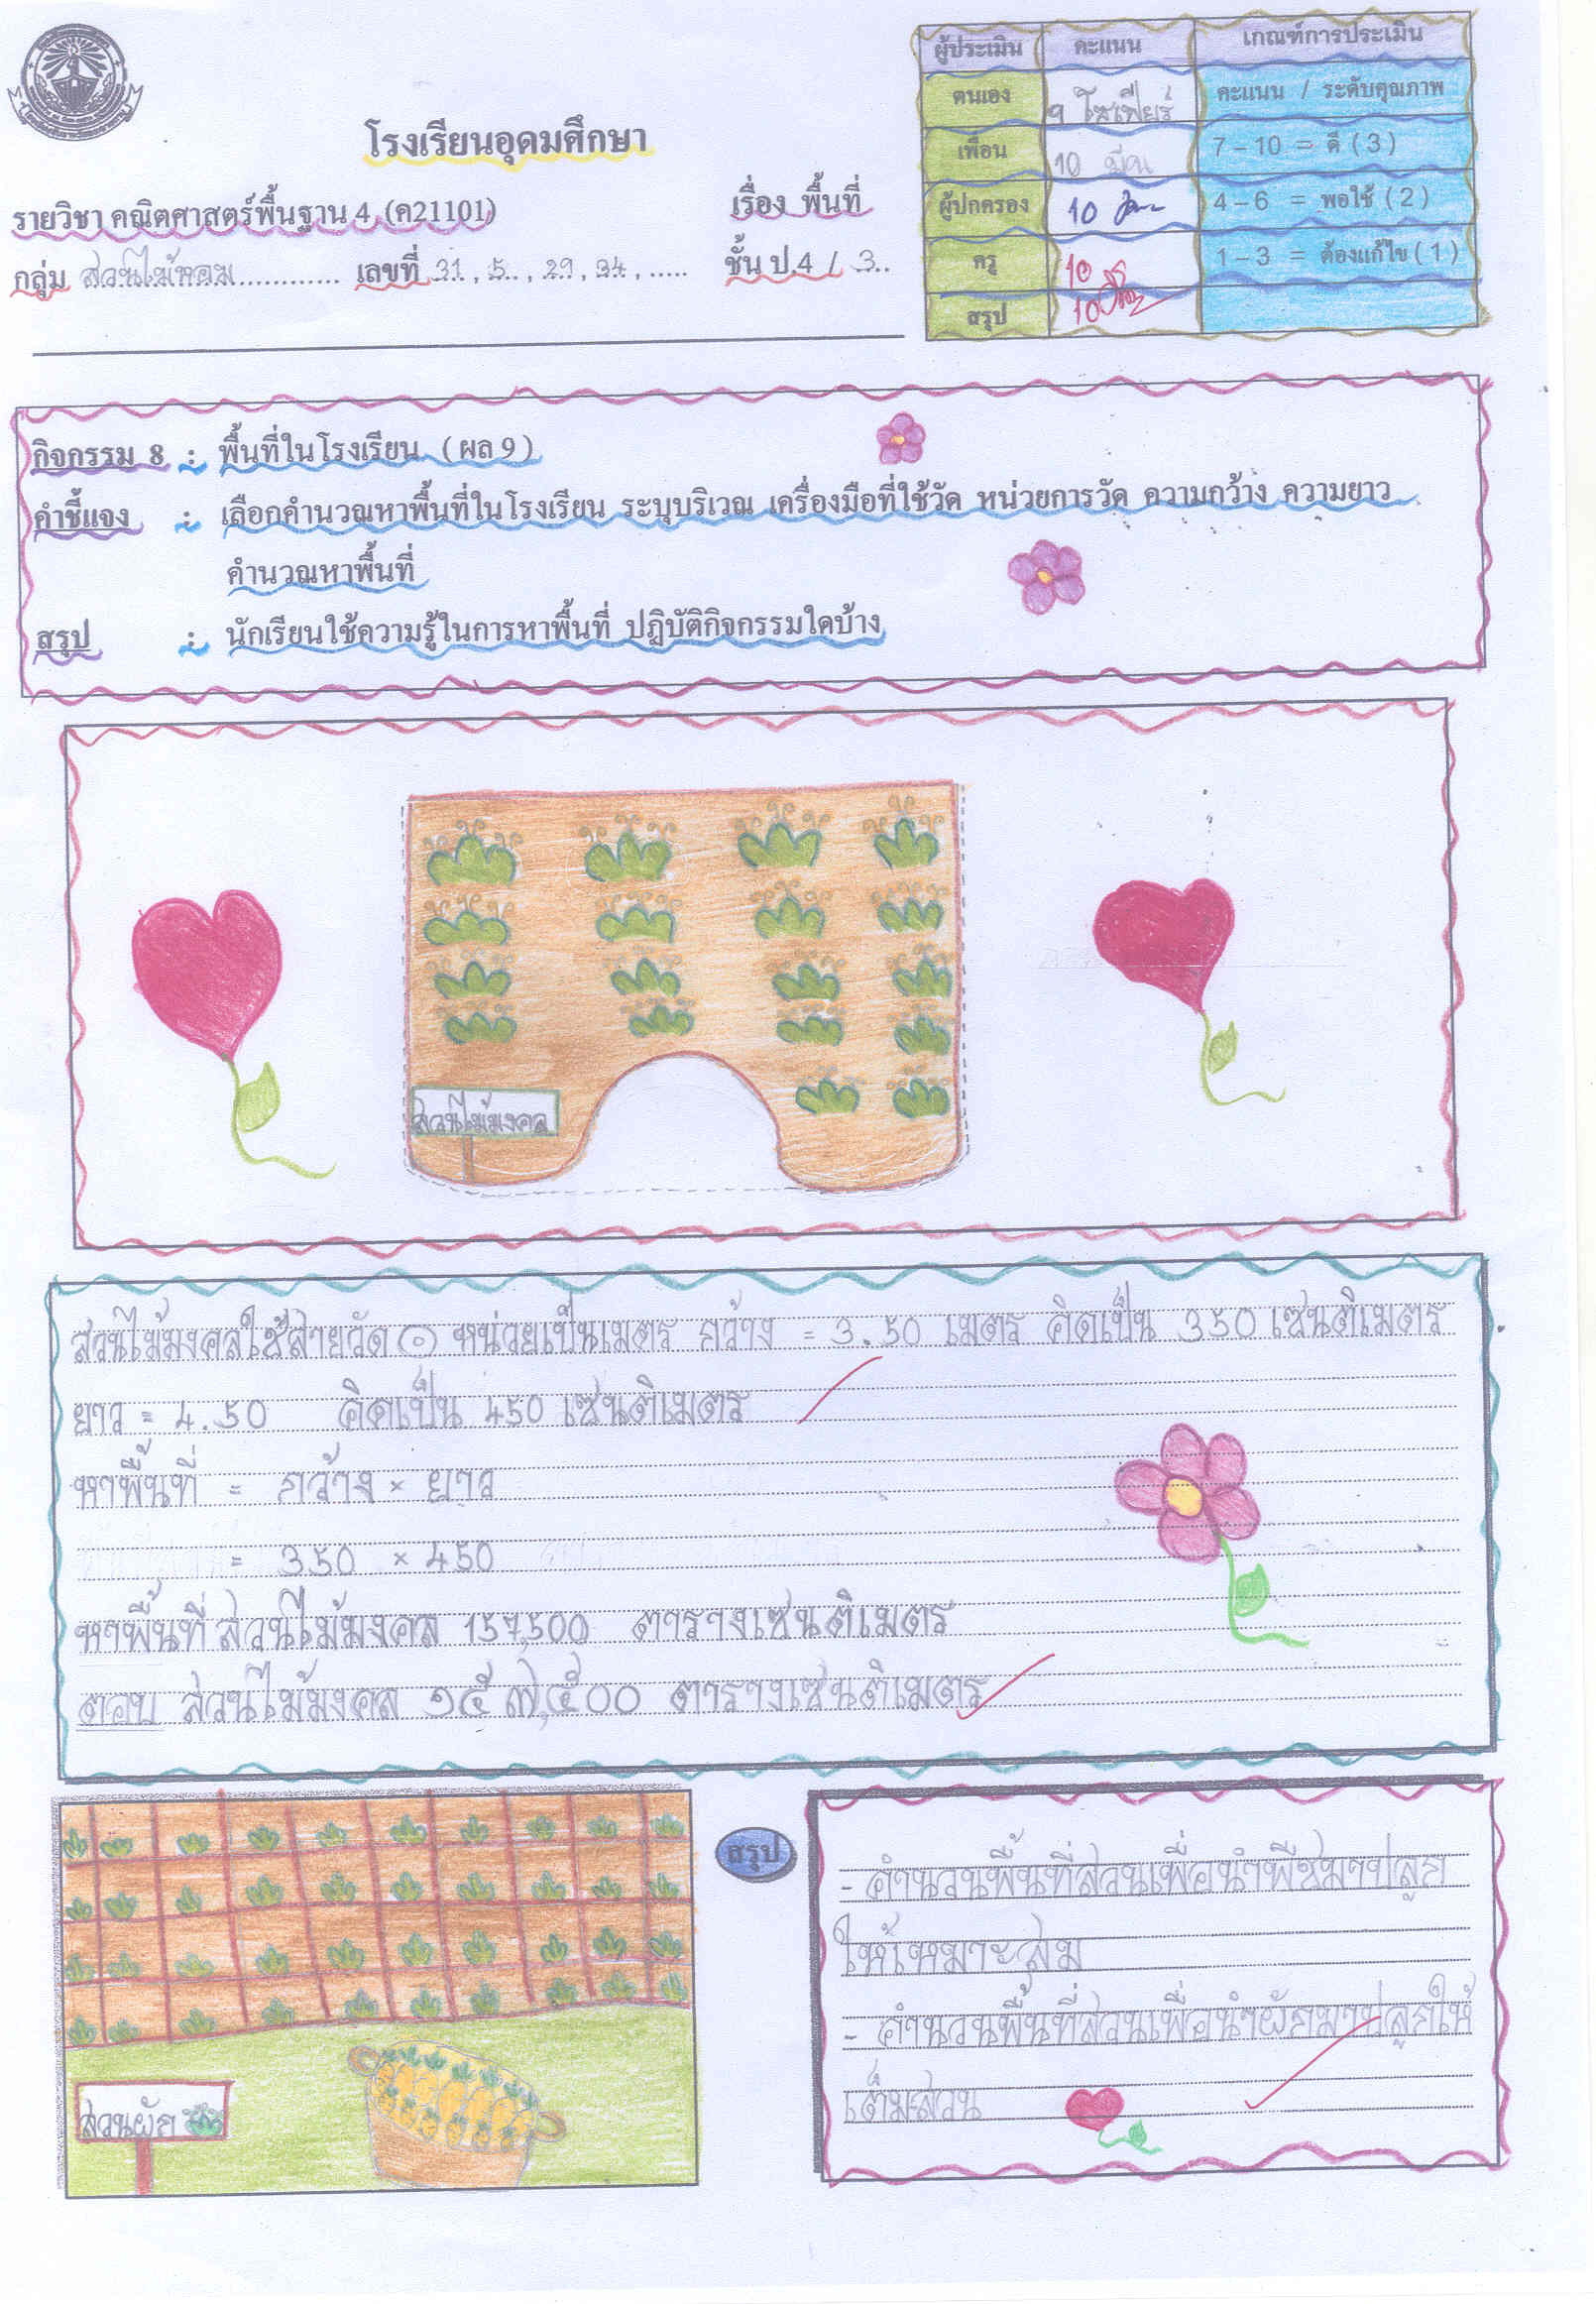 โรงเรียนอุดมศึกษา
รายวิชา คณิตศาสตร์พื้นฐาน 4 (ค21101) เรื่อง พื้นที่
กลุ่ม สวนไม้หอม............ เลขที่ 31 , 5 , 29 , 34 , ..... ชั้น ป.4 / 3
ผู้ประเมิน คะแนน เกณฑ์การประเมิน
ตนเอง 9 โซเฟียร์ คะแนน / ระดับคุณภาพ
เพื่อน 10 มีน 7 – 10 = ดี ( 3 )
ผู้ปกครอง 10 4 – 6 = พอใช้ ( 2 )
ครู 10 1 – 3 = ต้องแก้ไข ( 1 )
สรุป 10
กิจกรรม 8 : พื้นที่ในโรงเรียน ( ผล 9 )
คำชี้แจง : เลือกคำนวณหาพื้นที่ในโรงเรียน ระบุบริเวณ เครื่องมือที่ใช้วัด หน่วยการวัด ความกว้าง ความยาว
คำนวณหาพื้นที่
สรุป : นักเรียนใช้ความรู้ในการหาพื้นที่ ปฏิบัติกิจกรรมใดบ้าง
สวนไม้มงคล
สวนไม้มงคลใช้สายวัด หน่วยเป็นเมตร กว้าง = 3.50 เมตร คิดเป็น 350 เซนติเมตร
ยาว = 4.50 คิดเป็น 450 เซนติเมตร
หาพื้นที่ = กว้าง × ยาว
= 350 × 450
หาพื้นที่ สวนไม้มงคล 157,500 ตารางเซนติเมตร
ตอบ สวนไม้มงคล ๑๕๗,๕๐๐ ตารางเซนติเมตร
สวนผัก
สรุป
- คำนวนพื้นที่สวนเพื่อนำพืชมาปลูก
ให้เหมาะสม
- คำนวนพื้นที่สวนเพื่อนำผักมาปลูกให้
เต็มสวน